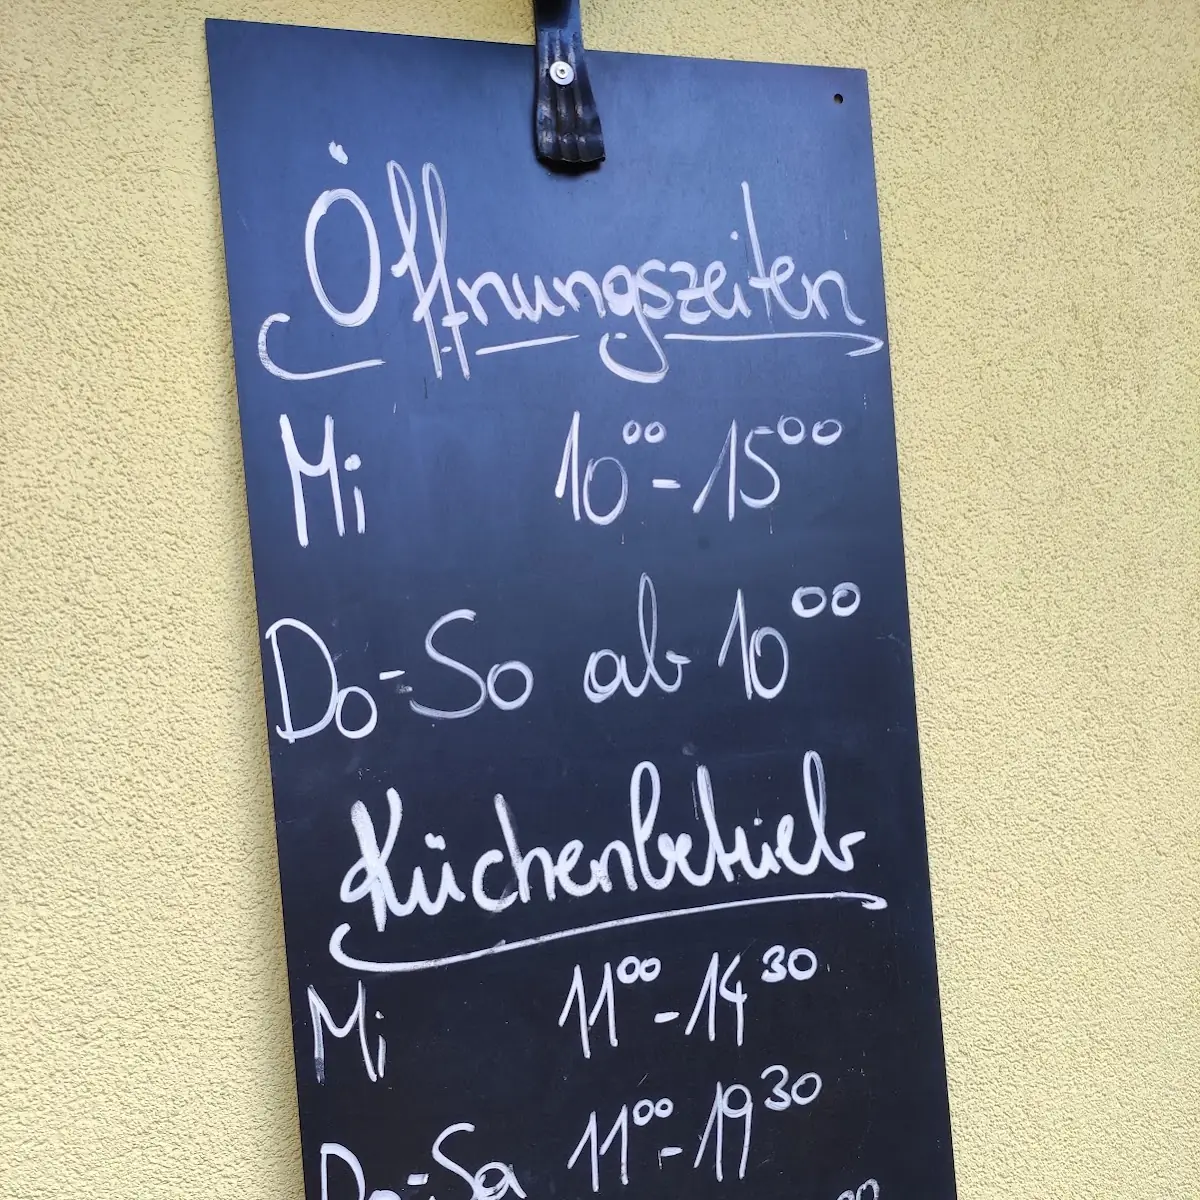 Öffnungszeiten
Mi 10⁰⁰ - 15⁰⁰
Do-So ab 10⁰⁰
Küchenbetrieb
Mi 11⁰⁰ - 14³⁰
Do-Sa 11⁰⁰ - 19³⁰